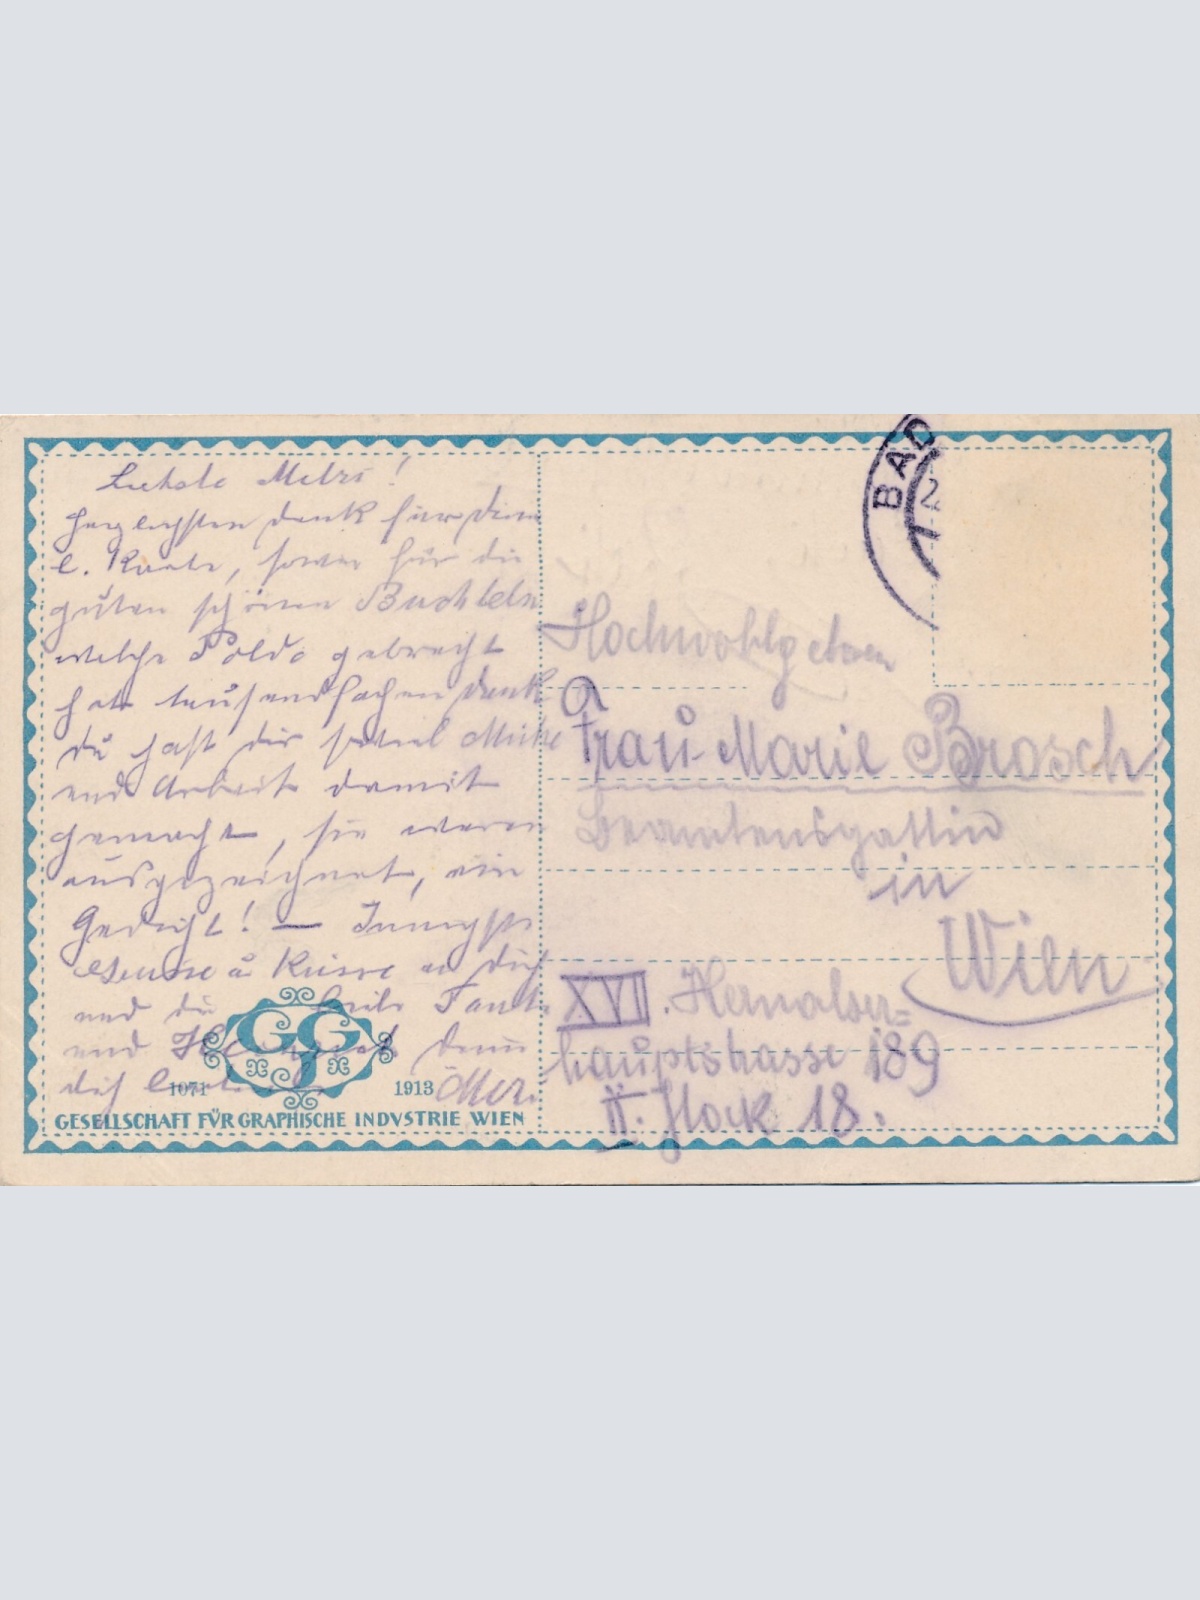 Liebste Mitzi!
Herzlichsten Dank für Deine
l. Karte, sowie für die
guten schönen Buchteln
welche Poldo gebracht
hat tausendfachen Dank
Du hast Dir soviel Mühe
und Arbeit damit
gemacht, sie waren
ausgezeichnet, ein
Gedicht! — Innigste
Grüsse u. Küsse an Dich
und die Tante
und Deine
Dich
1071 1913
GESELLSCHAFT FÜR GRAPHISCHE INDVSTRIE WIEN
BAD
2
Hochwohlgeboren
Frau Marie Brosch
Beamtensgattin
in
Wien
XVII. Hernalser=
hauptstrasse 189
II. Stock 18.